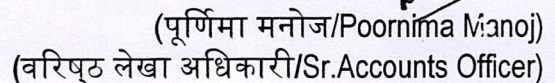 (पूर्णिमा मनोज/Poornima Manoj)
(वरिष्ठ लेखा अधिकारी/Sr.Accounts Officer)